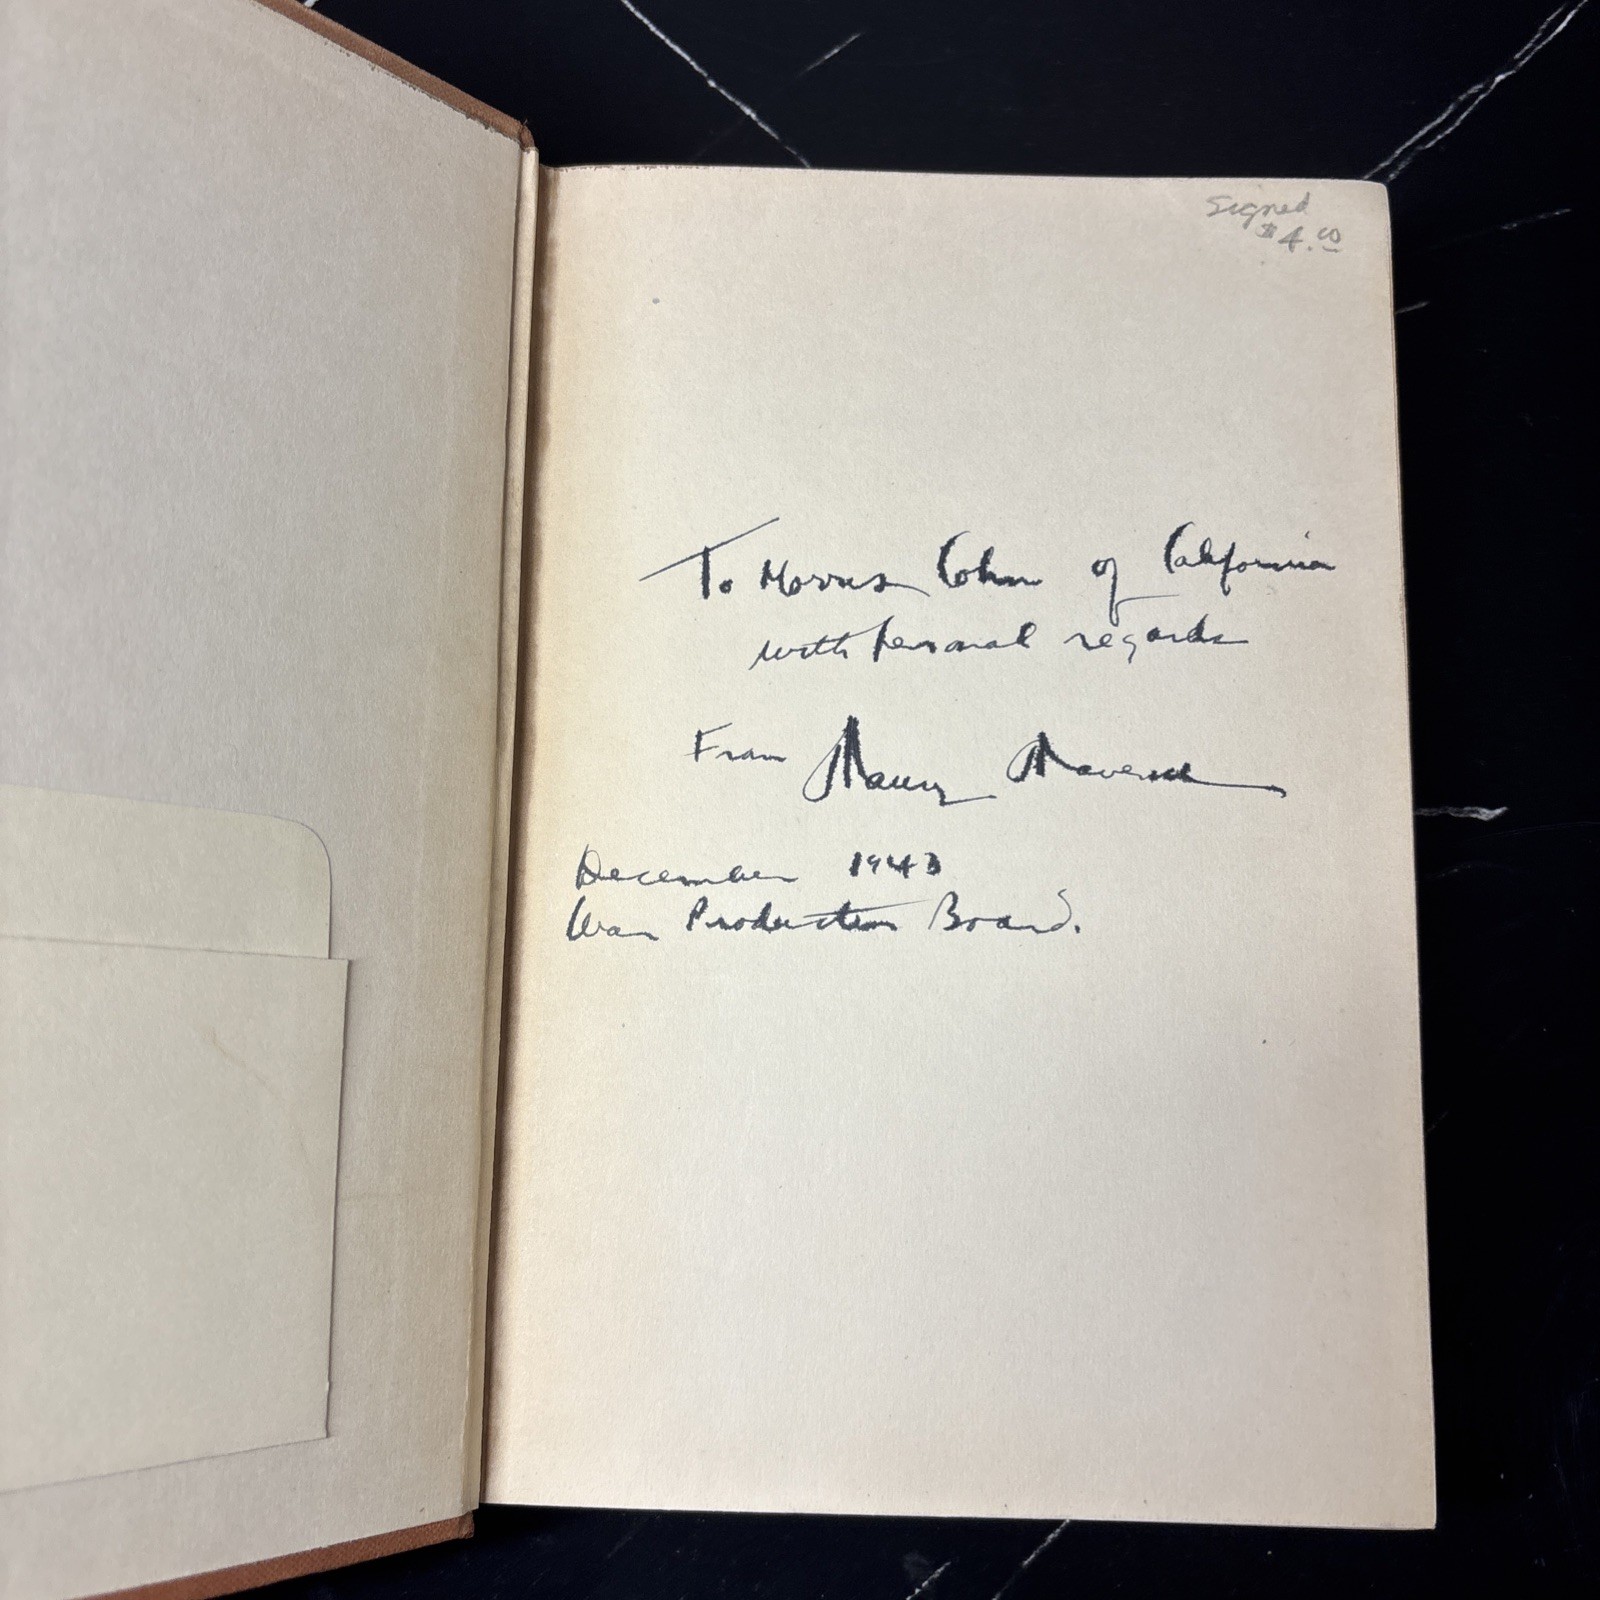 Signed
$4.00
To Morris Cohn of California
with personal regards
From Maury Maverick
December 1943
War Production Board.